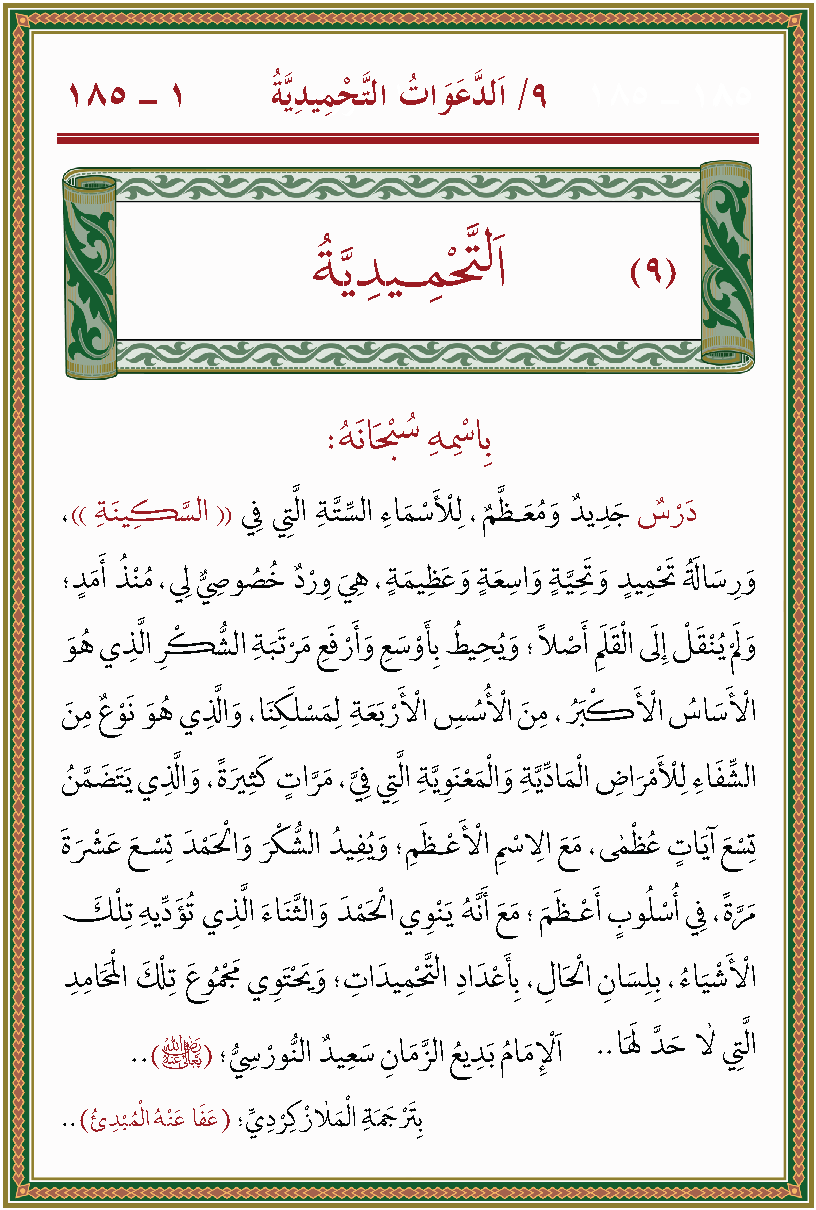 ٩/ اَلدَّعَوَاتُ التَّحْمِيدِيَّةُ ١ ـ ١٨٥
(٩) اَلتَّحْمِـيدِيَّةُ
بِاسْمِهِ سُبْحَانَهُ:
دَرْسٌ جَدِيدٌ وَمُعَـظَّمٌ، لِلْأَسْمَاءِ السِّتَّةِ الَّتِي فِي (( السَّـكِينَةِ ))،
وَرِسَالَةُ تَحْمِيدٍ وَتَحِيَّةٍ وَاسِعَةٍ وَعَظِيمَةٍ، هِيَ وِرْدٌ خُصُوصِيٌّ لِي، مُنْذُ أَمَدٍ؛
وَلَمْ يُنْقَلْ إِلَى الْقَلَمِ أَصْلاً؛ وَيُحِيطُ بِأَوْسَعِ وَأَرْفَعِ مَرْتَبَةِ الشُّـكْرِ الَّذِي هُوَ
الْأَسَاسُ الْأَكْبَرُ، مِنَ الْأُسُسِ الْأَرْبَعَةِ لِمَسْلَكِنَا، وَالَّذِي هُوَ نَوْعٌ مِنَ
الشِّفَاءِ لِلْأَمْرَاضِ الْمَادِّيَّةِ وَالْمَعْنَوِيَّةِ الَّتِي فِيَّ، مَرَّاتٍ كَثِيرَةً، وَالَّذِي يَتَضَمَّنُ
تِسْعَ آيَاتٍ عُظْمٰى، مَعَ الِاسْمِ الْأَعْـظَمِ؛ وَيُفِيدُ الشُّكْرَ وَالْحَمْدَ تِسْـعَ عَشْرَةَ
مَرَّةً، فِي أُسْلُوبٍ أَعْـظَمَ؛ مَعَ أَنَّهُ يَنْوِي الْحَمْدَ وَالثَّنَاءَ الَّذِي تُؤَدِّيهِ تِلْـكَ
الْأَشْيَاءُ، بِلِسَانِ الْحَالِ، بِأَعْدَادِ التَّحْمِيدَاتِ؛ وَيَحْتَوِي مَجْمُوعَ تِلْكَ الْمَحَامِدِ
الَّتِي لَا حَدَّ لَهَا.. اَلْإِمَامُ بَدِيعُ الزَّمَانِ سَعِيدٌ النُّورْسِيُّ؛ (رَضِيَ اللهُ تَعَالَى عَنْهُ)..
بِتَرْجَمَةِ الْمَلَازْكِرْدِيِّ؛ (عَفَا عَنْهُ الْمُبْدِئُ)..